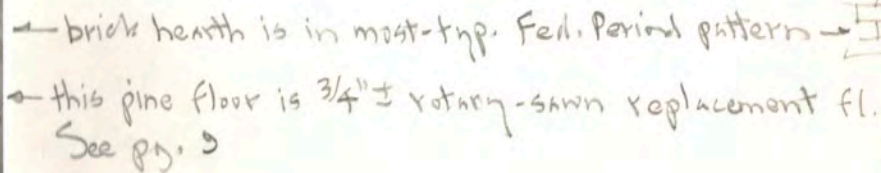 brick hearth is in most-typ. Fed. Period pattern
this pine floor is 3/4" ± rotary-sawn replacement fl.
See pg. 9